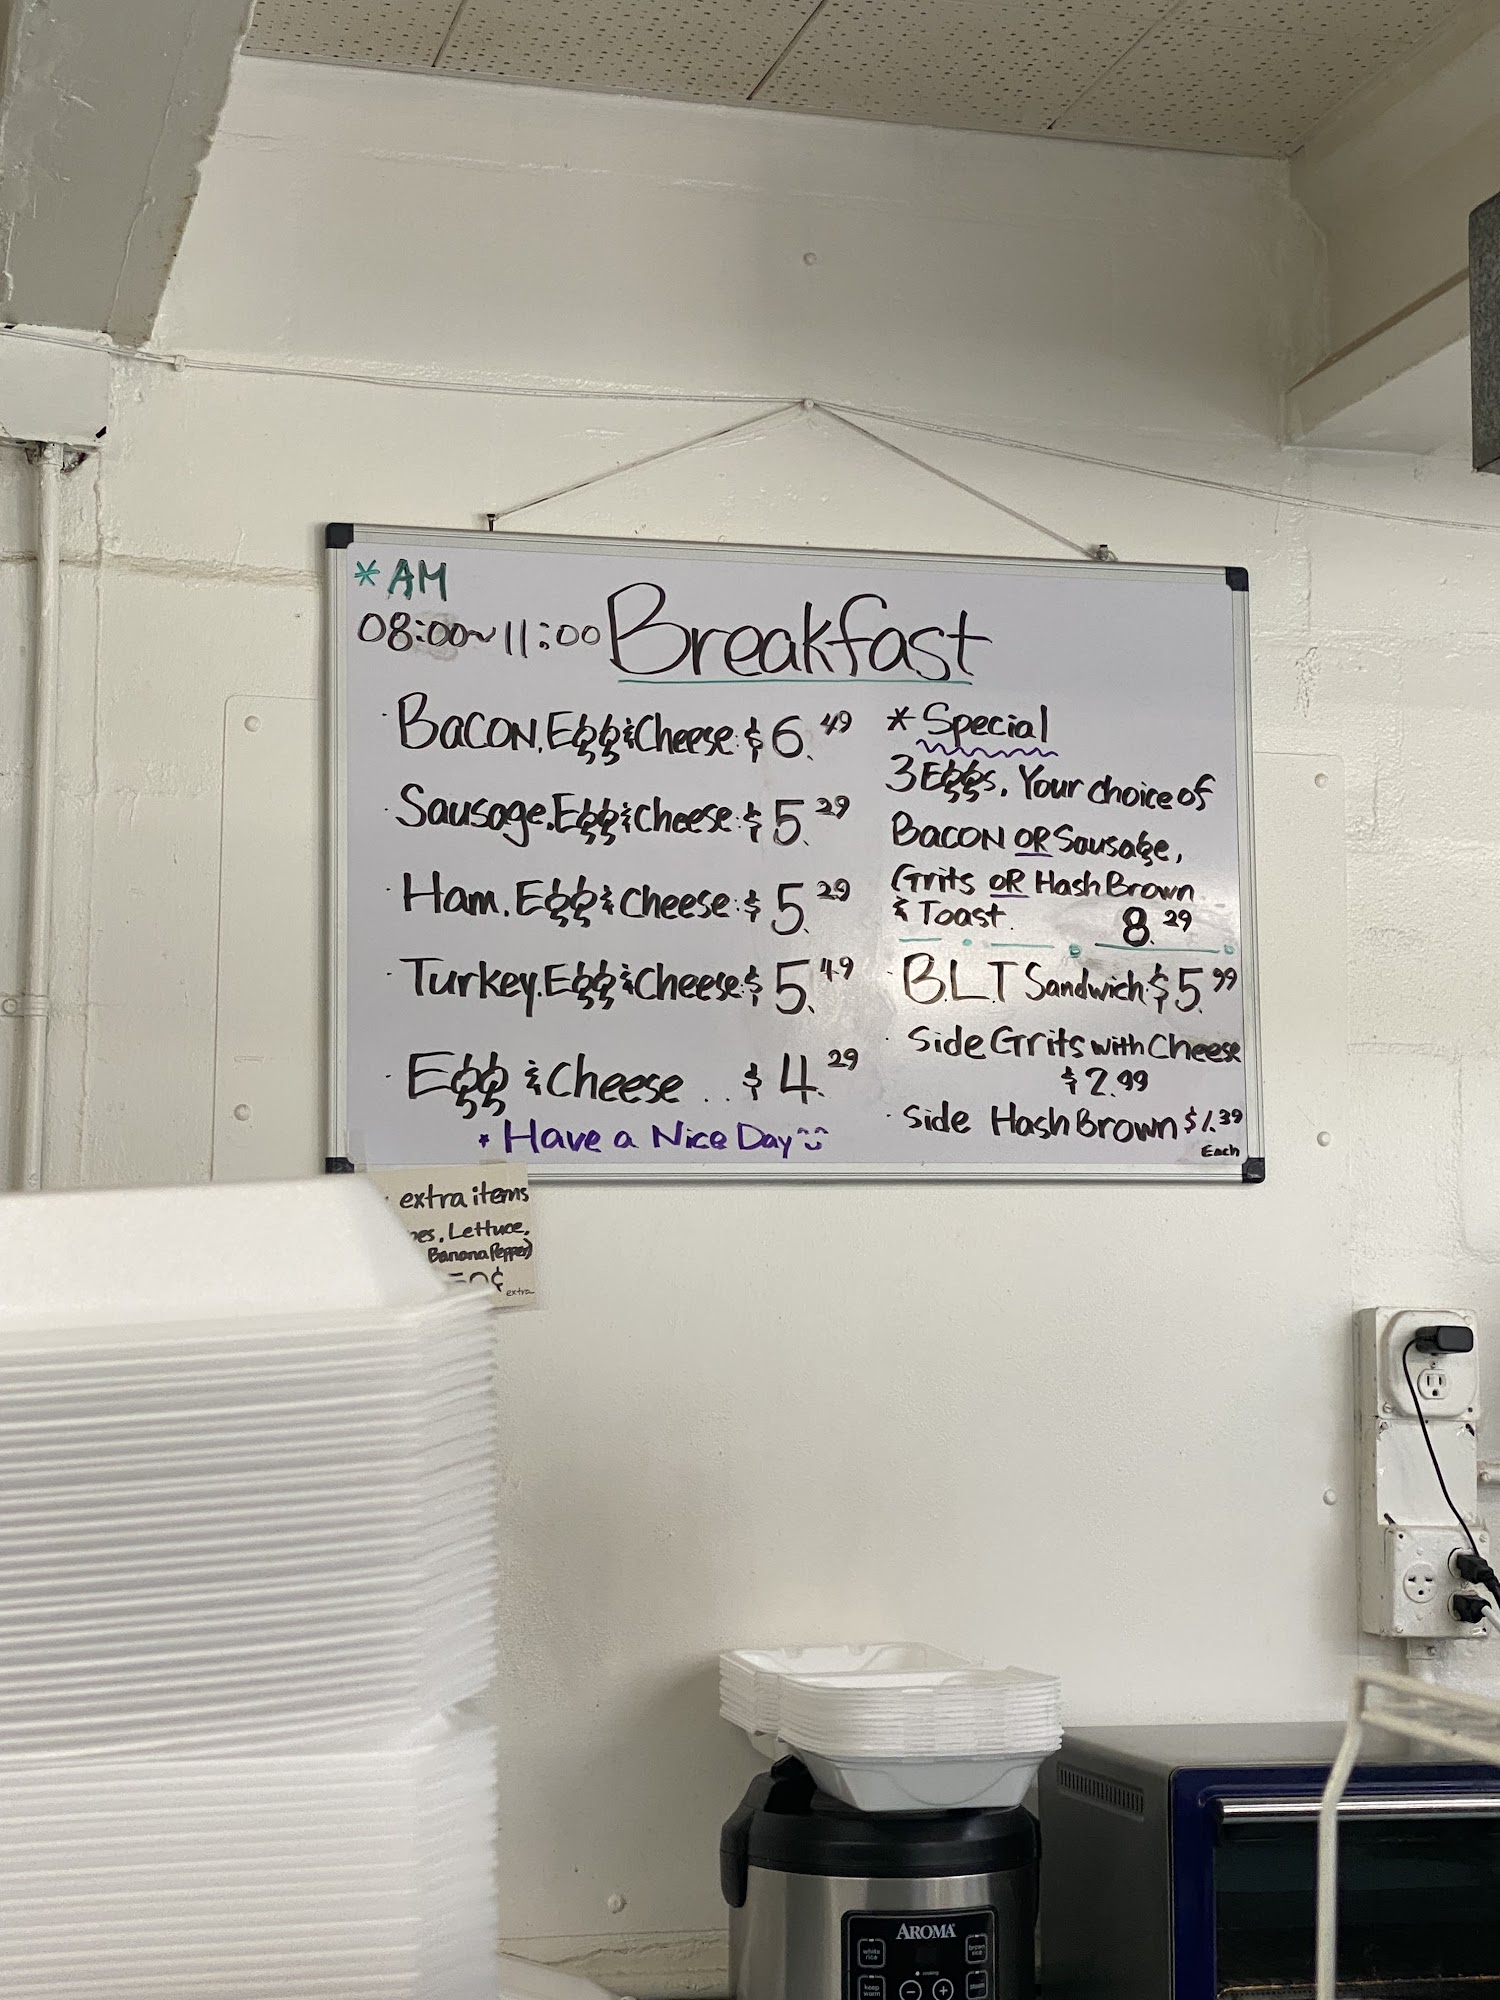 *AM
08:00~11:00 Breakfast
· Bacon, Egg & Cheese: $6.49
· Sausage, Egg & Cheese: $5.29
· Ham, Egg & Cheese: $5.29
· Turkey, Egg & Cheese: $5.49
· Egg & Cheese .. $4.29
* Have a Nice Day
* Special
3 Eggs, Your choice of
Bacon OR Sausage,
Grits OR Hash Brown
& Toast. 8.29
· B.L.T Sandwich: $5.99
· Side Grits with Cheese
$2.99
· Side Hash Brown $1.39
Each
extra items
Lettuce,
Banana Pepper)
extra
AROMA
white rice
brown rice
keep warm
steam
cooking
- +